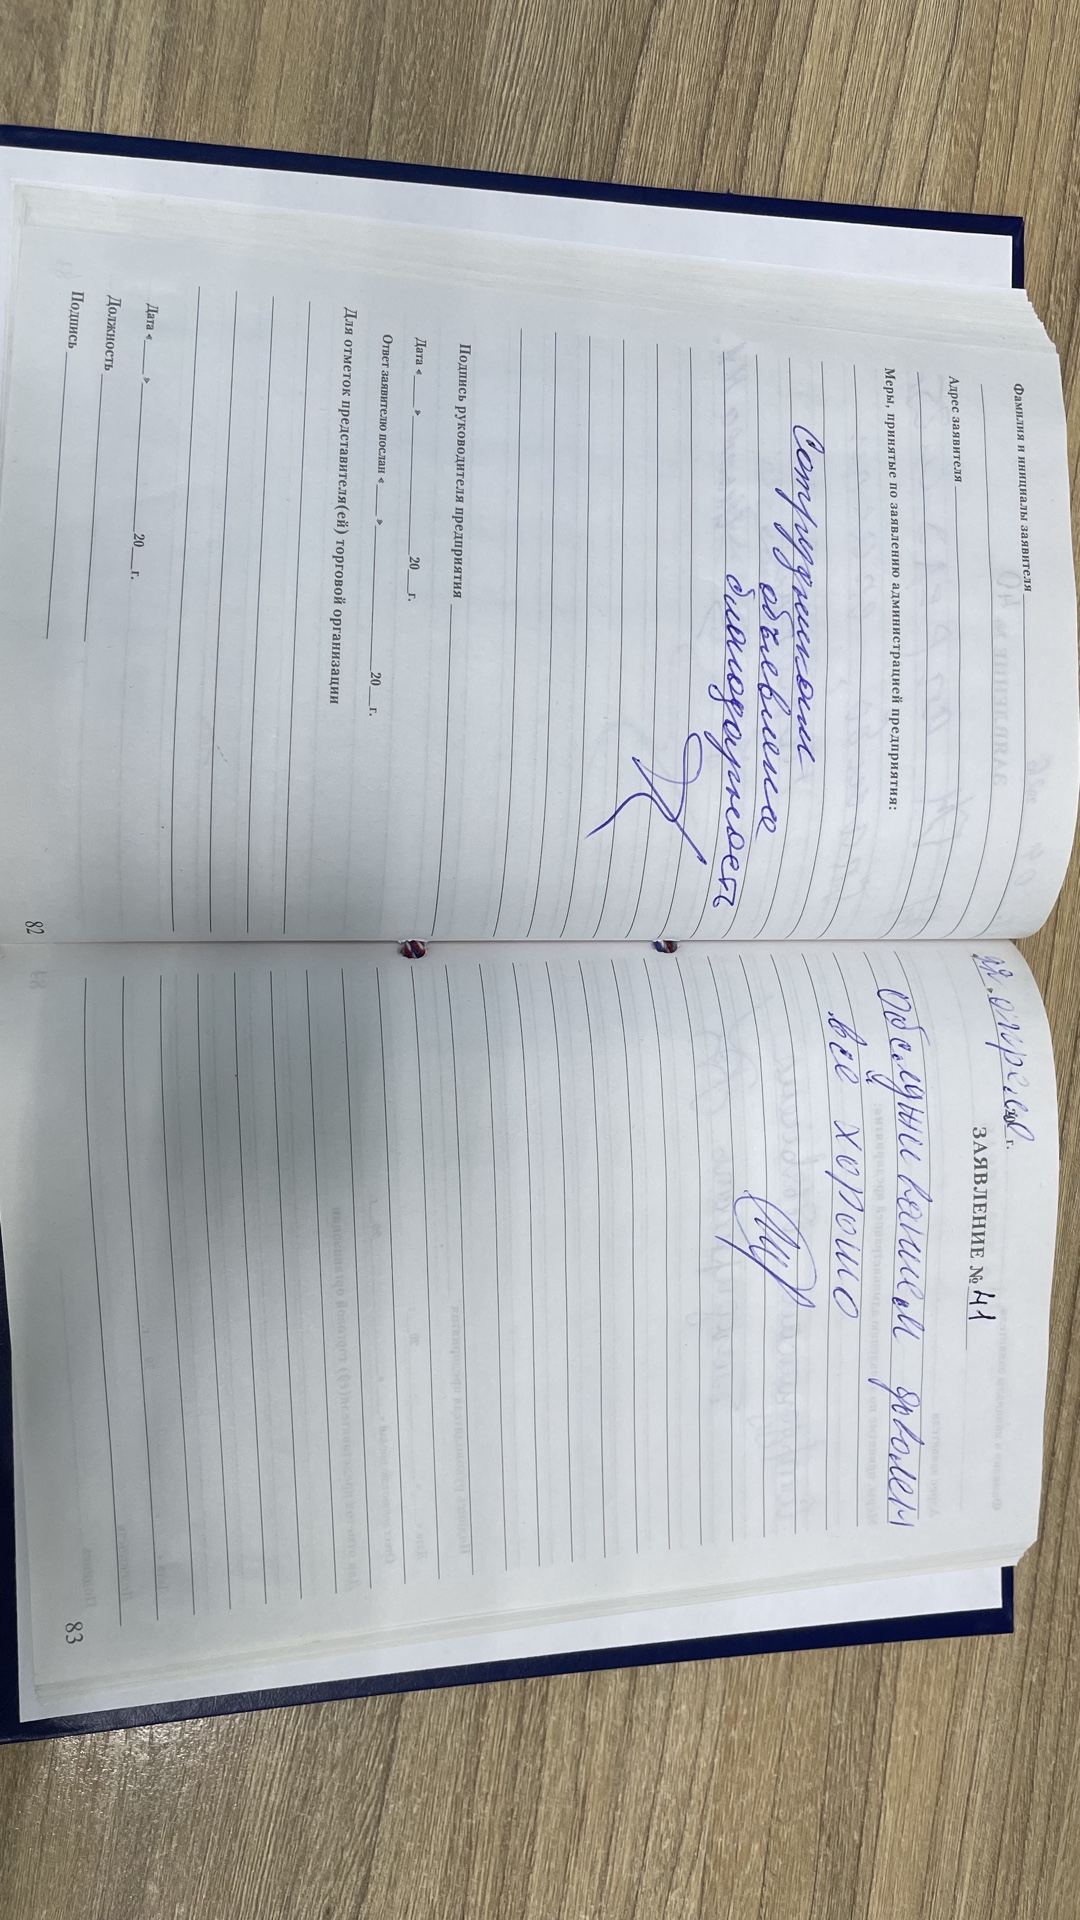 Фамилия и инициалы заявителя
Адрес заявителя
Меры, принятые по заявлению администрацией предприятия:
Сотрудникам
объявлена
благодарность
Подпись руководителя предприятия
Дата « » 20 г.
Ответ заявителю послан « » 20 г.
Для отметок представителя(ей) торговой организации
Дата « » 20 г.
Должность
Подпись
82
апреля г.
ЗАЯВЛЕНИЕ № 41
Обслуживанием доволен
всё хорошо
83